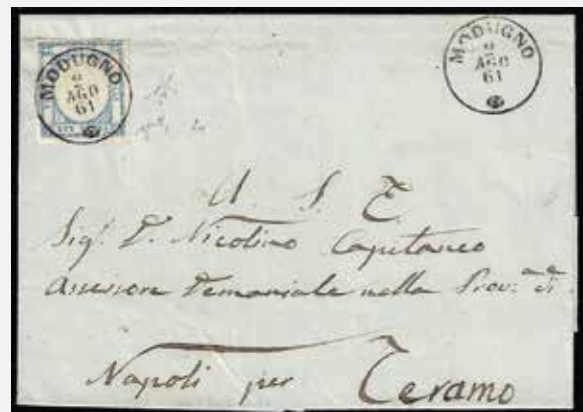 MODUGNO
2
AGO
61
MODUGNO
2
AGO
61
A. S. E.
Sig.r D. Nicolino Capitaneo
Assessore Demaniale nella Prov.
Napoli per Teramo